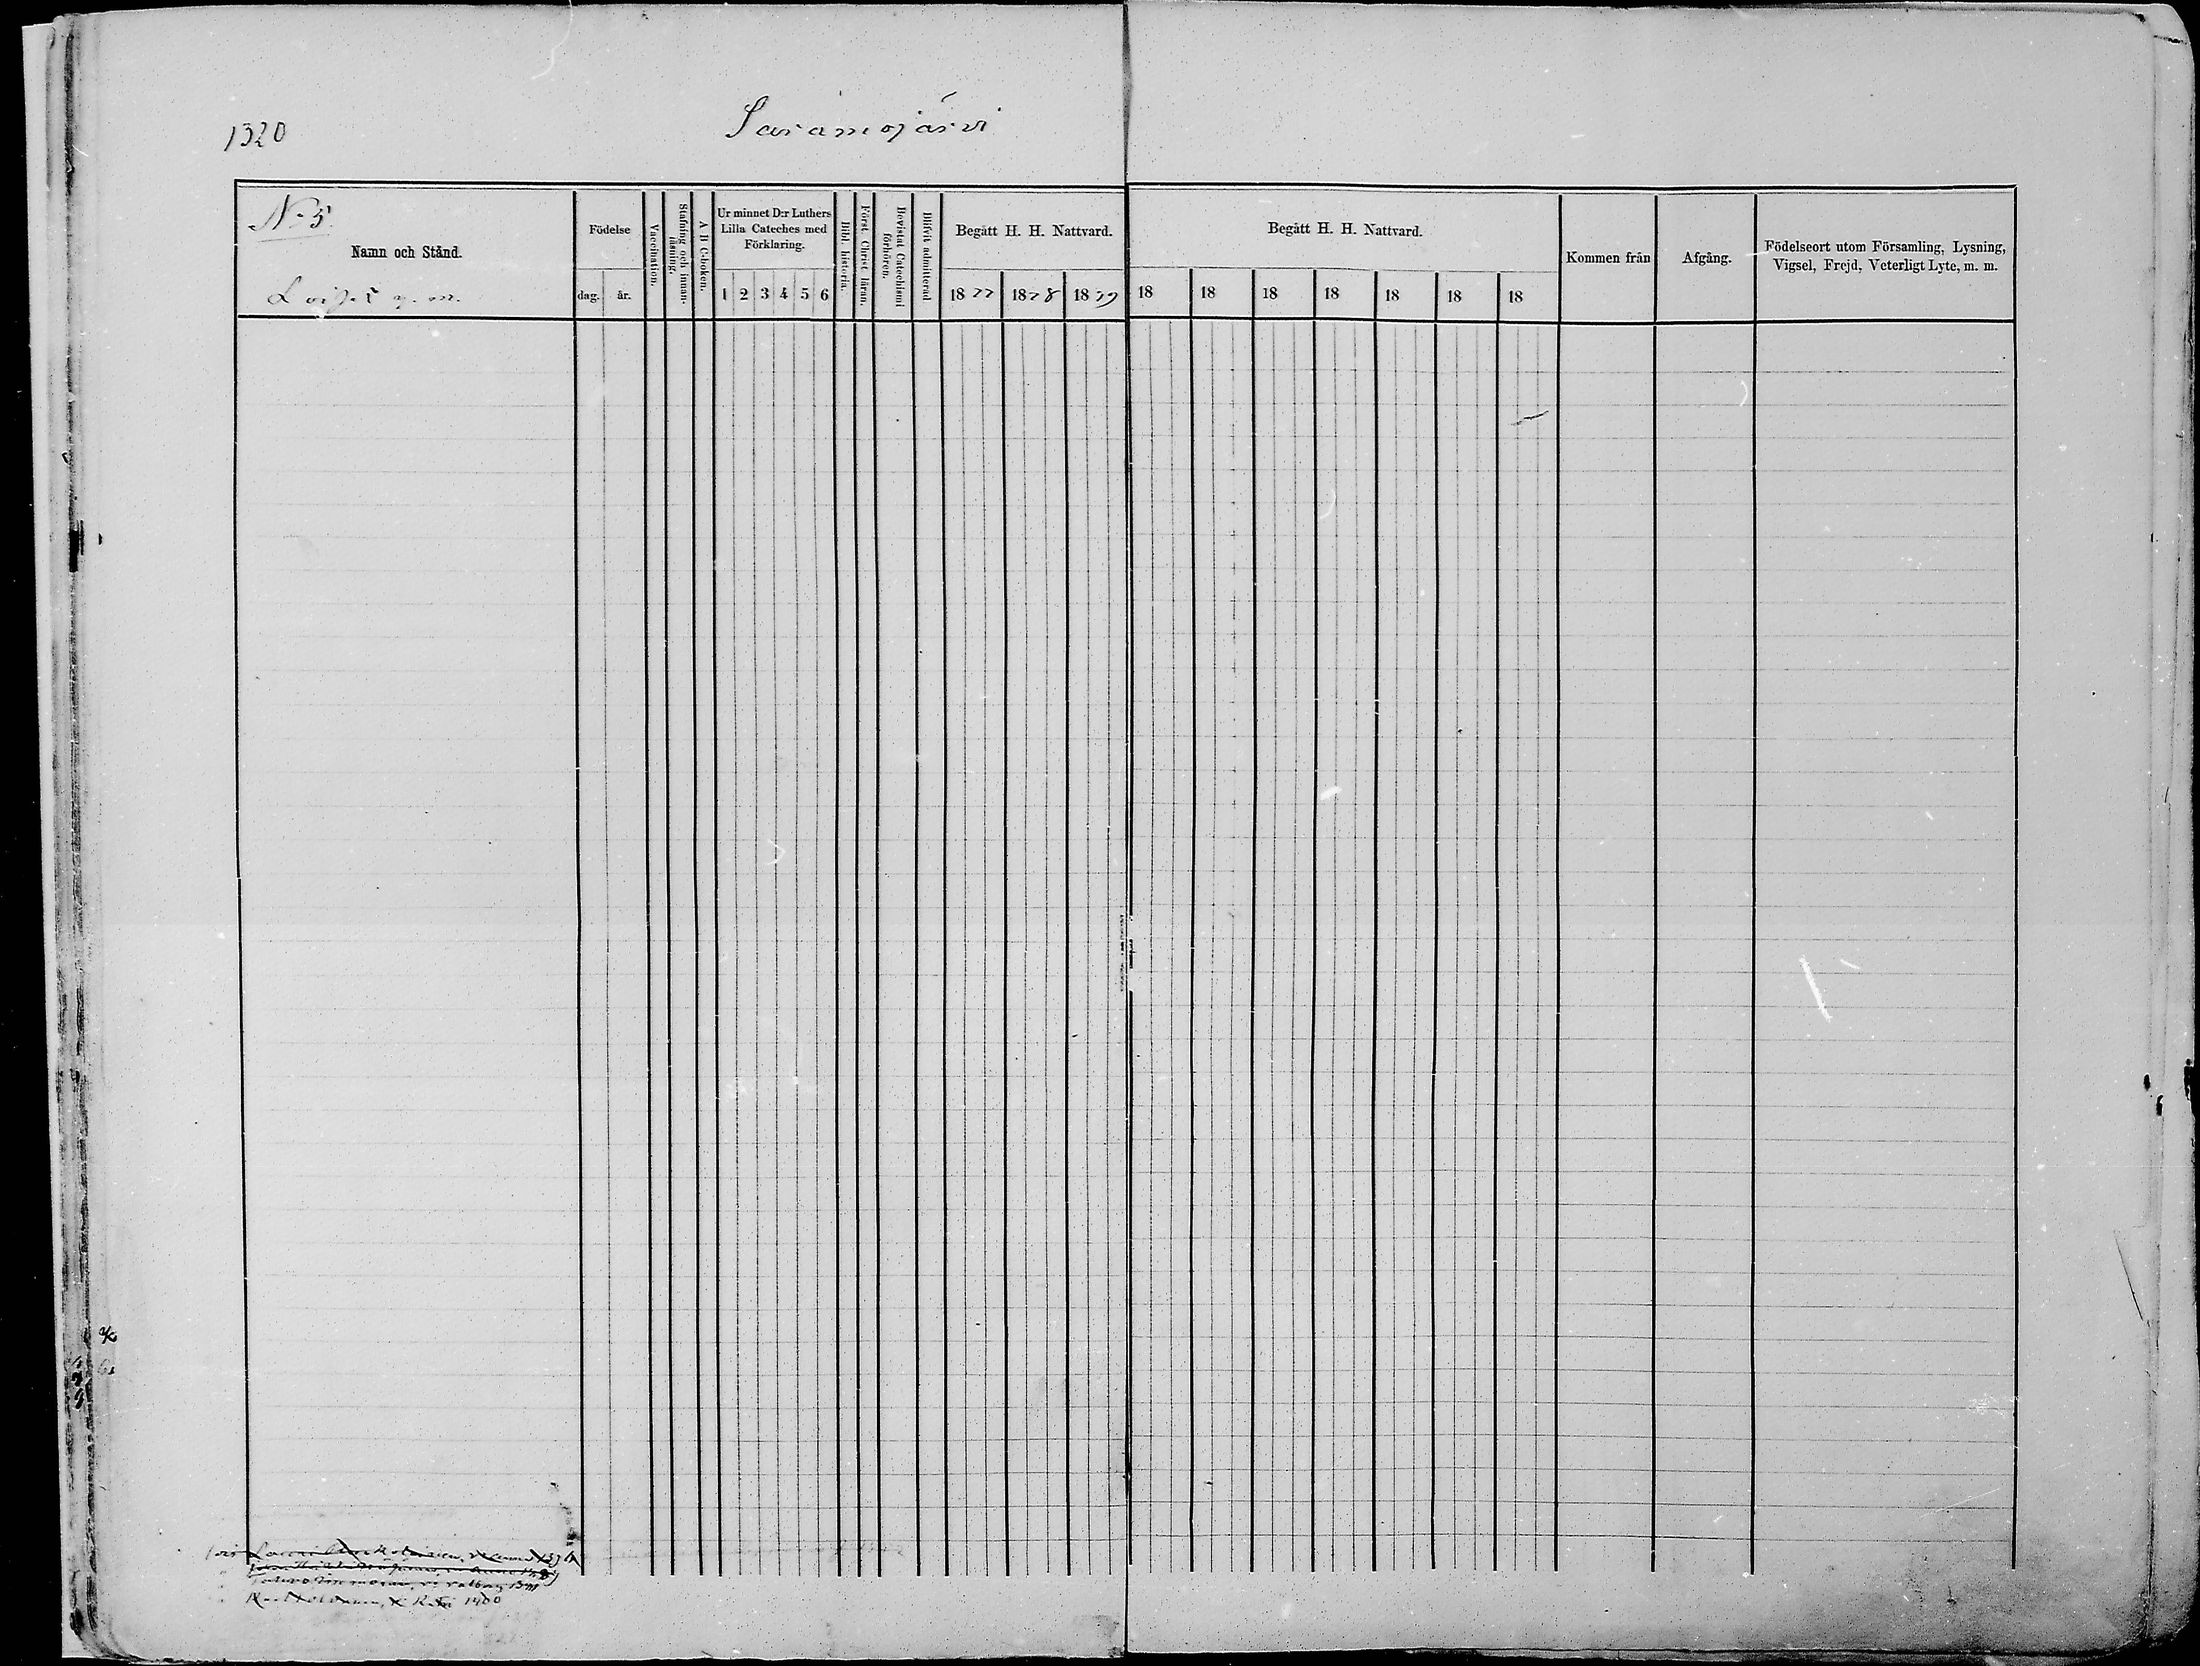 1320
Saramojärvi
No 5.
Namn och Stånd.
Födelse
dag.
år.
Vaccination.
Stafning och innan-
läsning.
A B C-boken.
Ur minnet D:r Luthers
Lilla Cateches med
Förklaring.
1 2 3 4 5 6
Bibl. historia.
Först. Christ. läran.
Bevistat Catechismi
förhören.
Blifvit admitterad
Begått H. H. Nattvard.
1877 1878 1879
Begått H. H. Nattvard.
18 18 18 18 18 18 18
Kommen från
Afgång.
Födelseort utom Församling, Lysning,
Vigsel, Frejd, Veterligt Lyte, m. m.